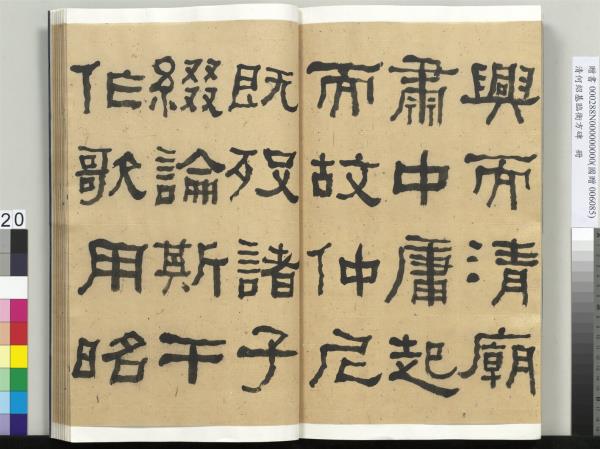 興而清廟
肅中庸起
而故仲尼
既歿諸子
綴論斯干
作歌用昭
贈書 000288N000000000(國贈 006085)
清何紹基臨衡方碑 冊
20